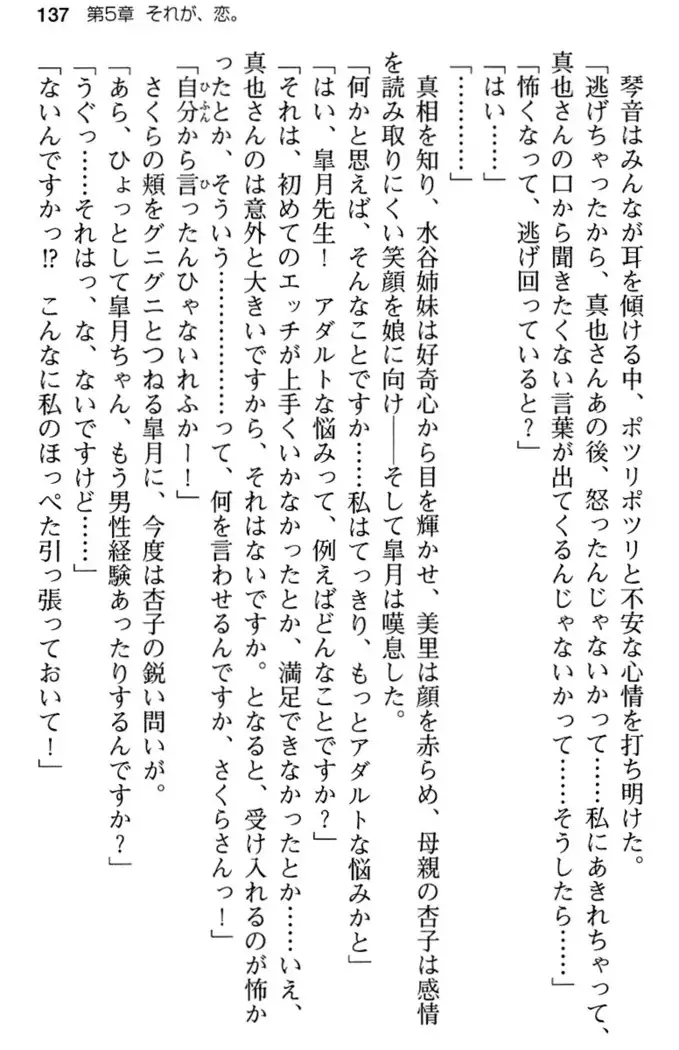 137 第5章 それが、恋。
琴音はみんなが耳を傾ける中、ポツリポツリと不安な心情を打ち明けた。
「逃げちゃったから、真也さんあの後、怒ったんじゃないかって……私にあきれちゃって、
真也さんの口から聞きたくない言葉が出てくるんじゃないかって……そうしたら……」
「怖くなって、逃げ回っていると？」
「はい……」
「…………」
真相を知り、水谷姉妹は好奇心から目を輝かせ、美里は顔を赤らめ、母親の杏子は感情
を読み取りにくい笑顔を娘に向け――そして皐月は嘆息した。
「何かと思えば、そんなことですか……私はてっきり、もっとアダルトな悩みかと」
「はい、皐月先生！　アダルトな悩みって、例えばどんなことですか？」
「それは、初めてのエッチが上手くいかなかったとか、満足できなかったとか……いえ、
真也さんのは意外と大きいですから、それはないですか。となると、受け入れるのが怖か
ったとか、そういう………………って、何を言わせるんですか、さくらさんっ！」
「自分から言ったんひゃないれふかー！」
さくらの頬をグニグニとつねる皐月に、今度は杏子の鋭い問いが。
「あら、ひょっとして皐月ちゃん、もう男性経験あったりするんですか？」
「うぐっ……それはっ、な、ないですけど……」
「ないんですかっ!?　こんなに私のほっぺた引っ張っておいて！」